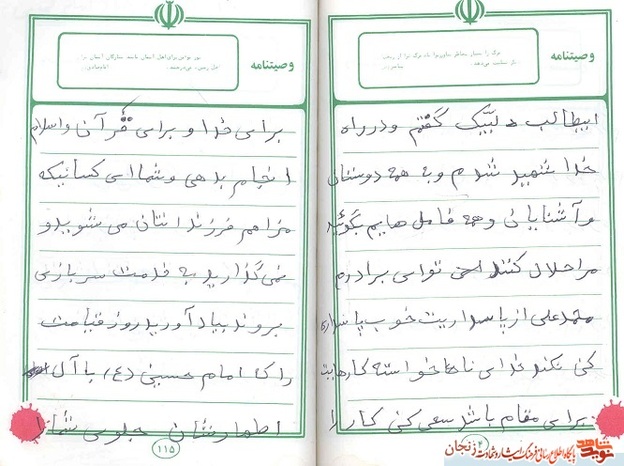 وصیتنامه
ابیطالب لبیک گفتم و در راه
خدا شهید شدم و به همه دوستان
و آشنایانی و همه فامیل هایم بگوئید
مرا حلال کنند اخی توای برادرم
محمد علی از پاسداریت خوب پاسداری
کنی نکند خدای ناخواسته کارهایت
برای مقام باشد سعی کنی کار را
وصیتنامه
برای خدا و برای قرآن و اسلام
انجام بدهی و شما ای کسانیکه
مزاحم فرزندانتان می شوید و
نمی گذارید به خدمت سربازی
بروند بیاد آورید روز قیامت
را که امام حسین (ع) با آل
اطهارشان جلوی شما را
۱۱۵
نوید شاهد
پایگاه اطلاع رسانی فرهنگ ایثار و شهادت زنجان